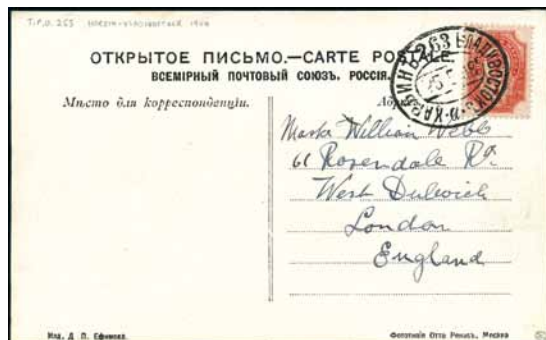 T.P.O. 263
ОТКРЫТОЕ ПИСЬМО.—CARTE POSTALE.
ВСЕМІРНЫЙ ПОЧТОВЫЙ СОЮЗЪ. РОССІЯ.
Мѣсто для корреспонденціи.
263 ВЛАДИВОСТОК
ХАРБИНЪ
Master William Webb
61 Rosendale Rd
West Dulwich
London
England
Изд. Д. П. Ефимова.
Фототипія Отто Ренаръ, Москва